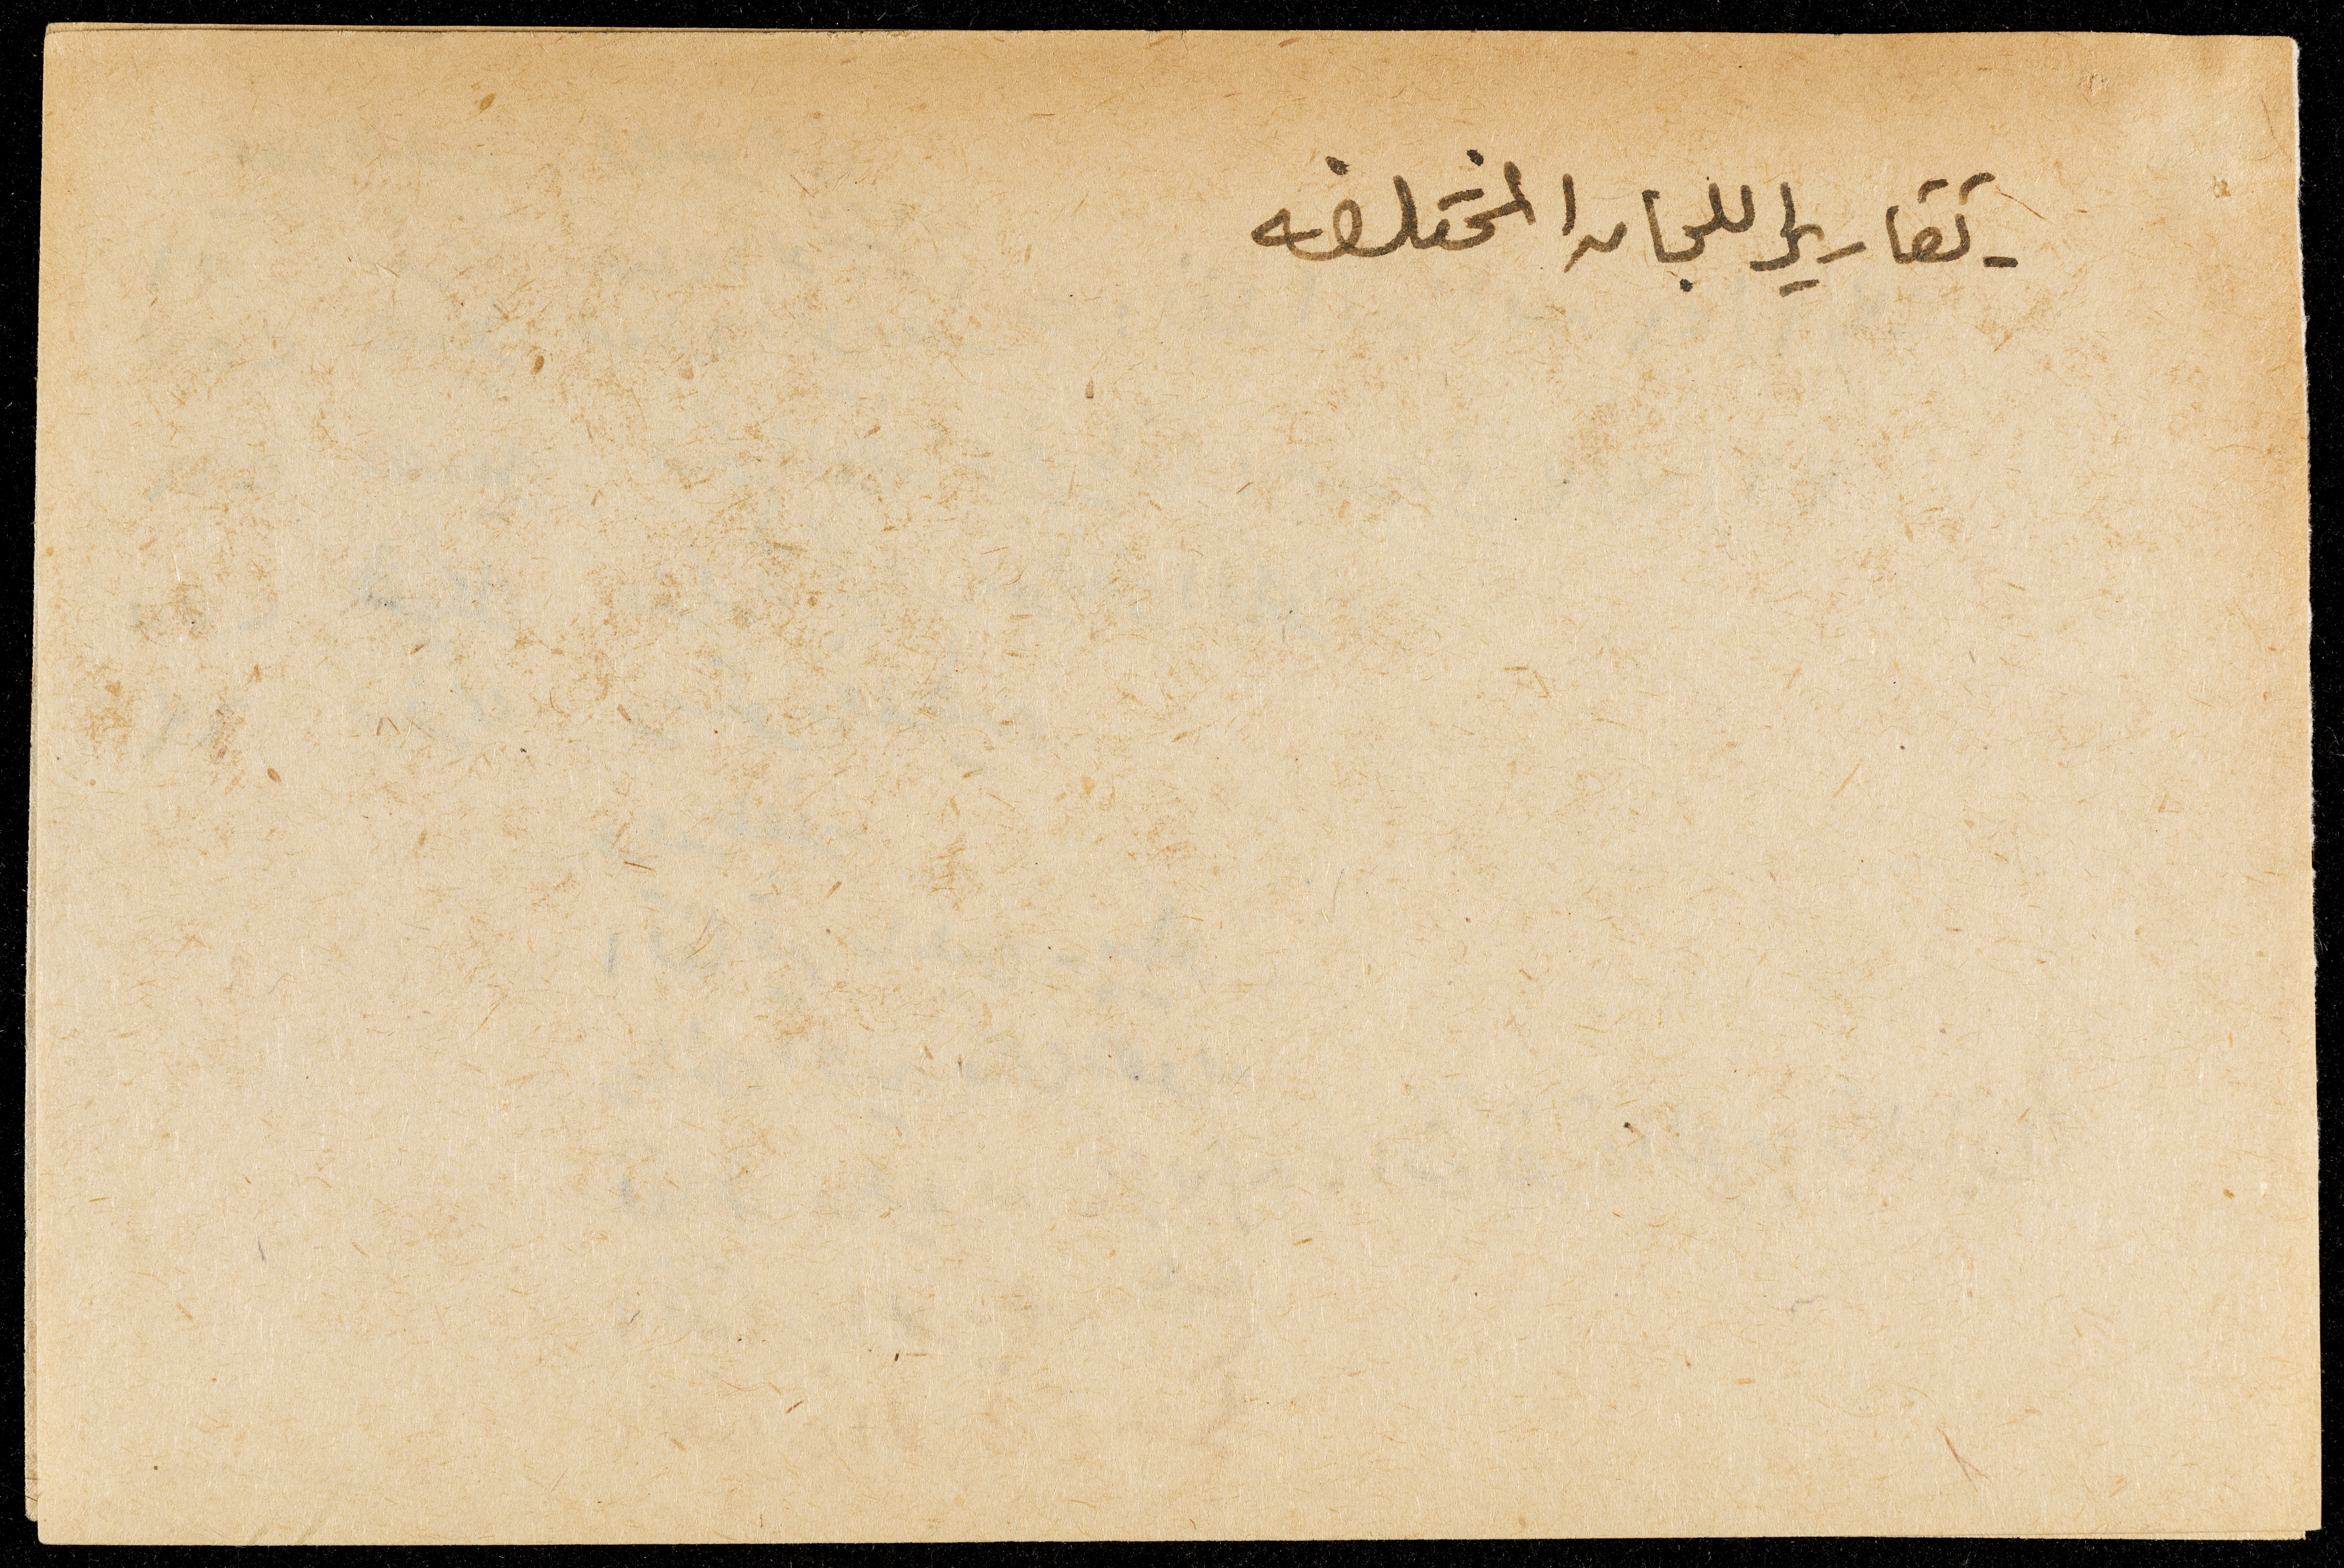 - تقارير اللجان المختلفه